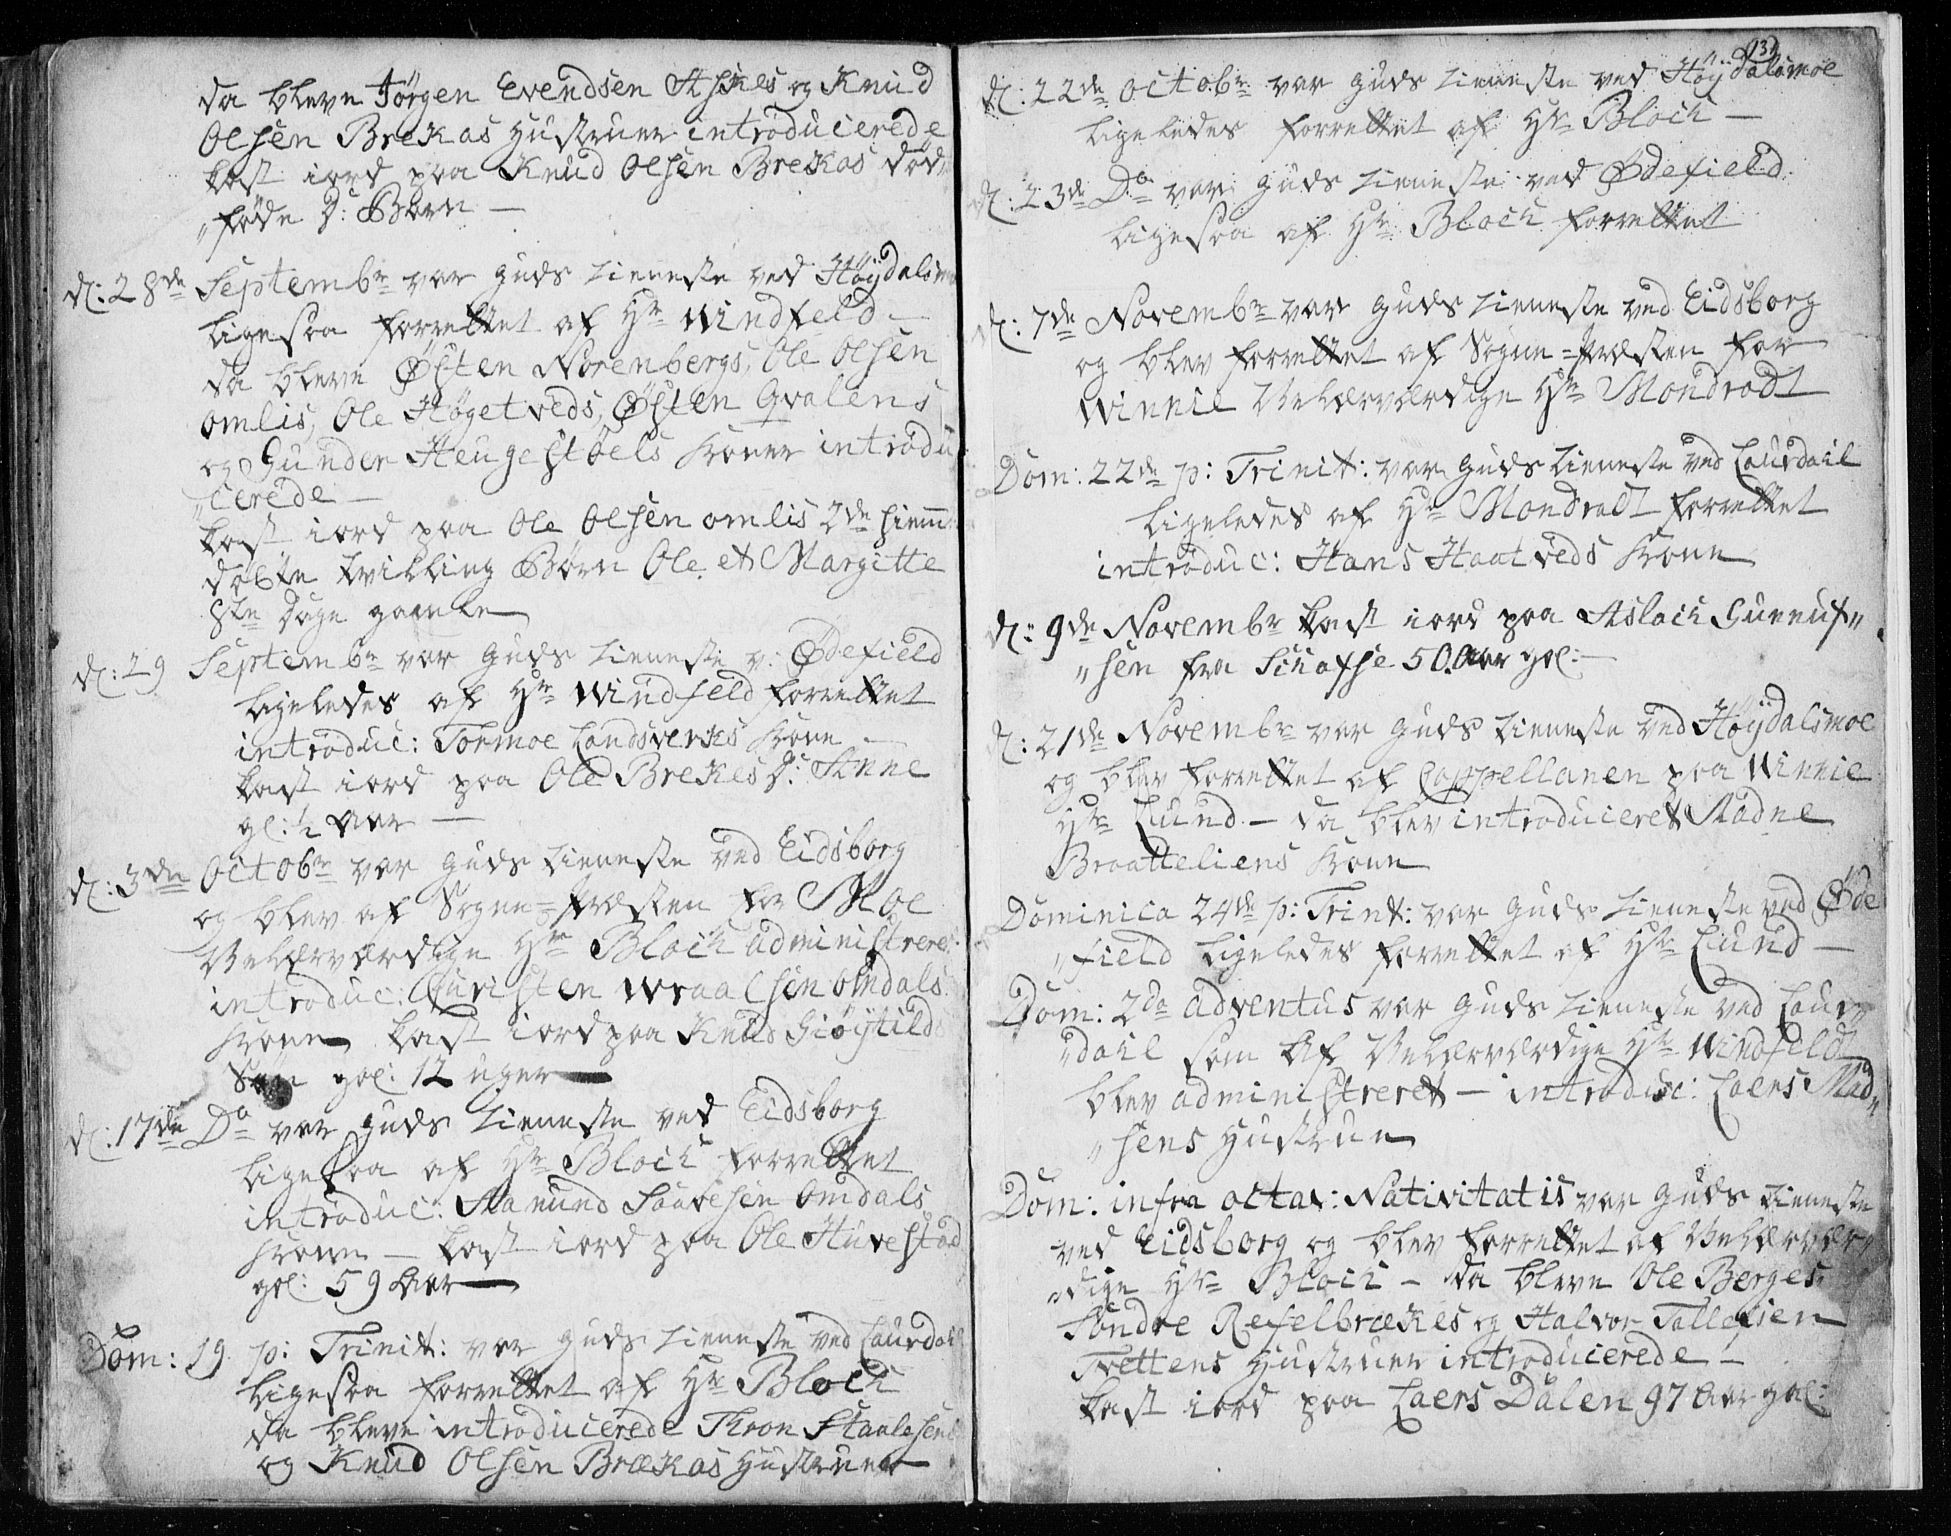 da bleve Jörgen Evendsen Askes og Knud
Olsen Brekas Hustruer introducerede
kast iord paa Knud Olsen Brekas död„
„föde D: Barn —
d: 28de Septembr var Guds Tieneste ved Höÿdalsmoe
ligesaa forrettet af Hr Windfeld —
da bleve Östen Norenbergs, Ole Olsen
Omlis, Ole Högetveds, Östen Qvalens
og Gunder Heugestöels Koner introdu
„cerede —
kast iord paa Ole Olsen Omlis 2de hiemme
döbte Tvilling Börn Ole et Margitte
8te Dage gamle
d: 29 Septembr var Guds Tieneste v: Ödefield
ligeledes af Hr Windfeld forrettet
introduc: Tormoe Landsverkes Kone —
kast iord paa Ole Brekes D: Anne
gl: ½ Aar —
d: 3de Octobr var Guds Tieneste ved Eidsborg
og blev af Sogne=Præsten for Moe
Velærværdige Hr Bloch administreret
introduc: Christen Wraalsen Omdals
Kone kast iord paa Knud
Sön gl: 12 uger —
d: 17de Do var Guds Tieneste ved Eidsborg
ligesaa af Hr Bloch forrettet
introduc: Aamund Sauvesen Omdals
Kone — kast iord paa Ole Huvestad
gl: 59 Aar —
Dom: 19 p: Trinit: var Guds Tieneste ved Laurdail
ligesaa forrettet af Hr Bloch
da bleve introducerede Thron Staalesens
og Knud Olsen Brækas Hustruer
134
d: 22de Octobr var Guds Tieneste ved Höÿdalsmoe
ligeledes forrettet af Hr Bloch —
d: 23de Do var Guds Tieneste ved Ödefield
ligesaa af Hr Bloch forrettet
d: 7de Novembr var Guds Tieneste ved Eidsborg
og blev forrettet af Sogne=Præsten for
Winnie Velærværdige Hr Mondrodt
Dom: 22de p: Trinit: var Guds Tieneste ved Laurdail
ligeledes af Hr Mondradt forrettet
introduc: Hans Haatveds Kone
d: 9de Novembr kast iord paa Aslach Gunnuf„
„sen fra Schafse 50 Aar gl: —
d: 21de Novembr var Guds Tieneste ved Höÿdalsmoe
og blev forrettet af Cappellanen paa Winnie
Hr Lund — da blev introduceret Aadne
Braatteliens Kone
Dominica 24de p: Trint: var Guds Tieneste ved Öde
„field ligeledes forrettet af Hr Lund —
Dom: 2da adventus var Guds Tieneste ved Laur„
„dail som af Velærværdige Hr Windfeldt
blev administreret — introduc: Laers Mad„
„sens Hustrue
Dom: infra octav: Nativitatis var Guds Tieneste
ved Eidsborg og blev forrettet af Velærvær„
„dige Hr Bloch — da bleve Ole Berges
Sondre Refelbrækes og Halvor Tallefsen
Tvettens Hustruer introducerede —
kast iord paa Laers Dalen 97 Aar gl: